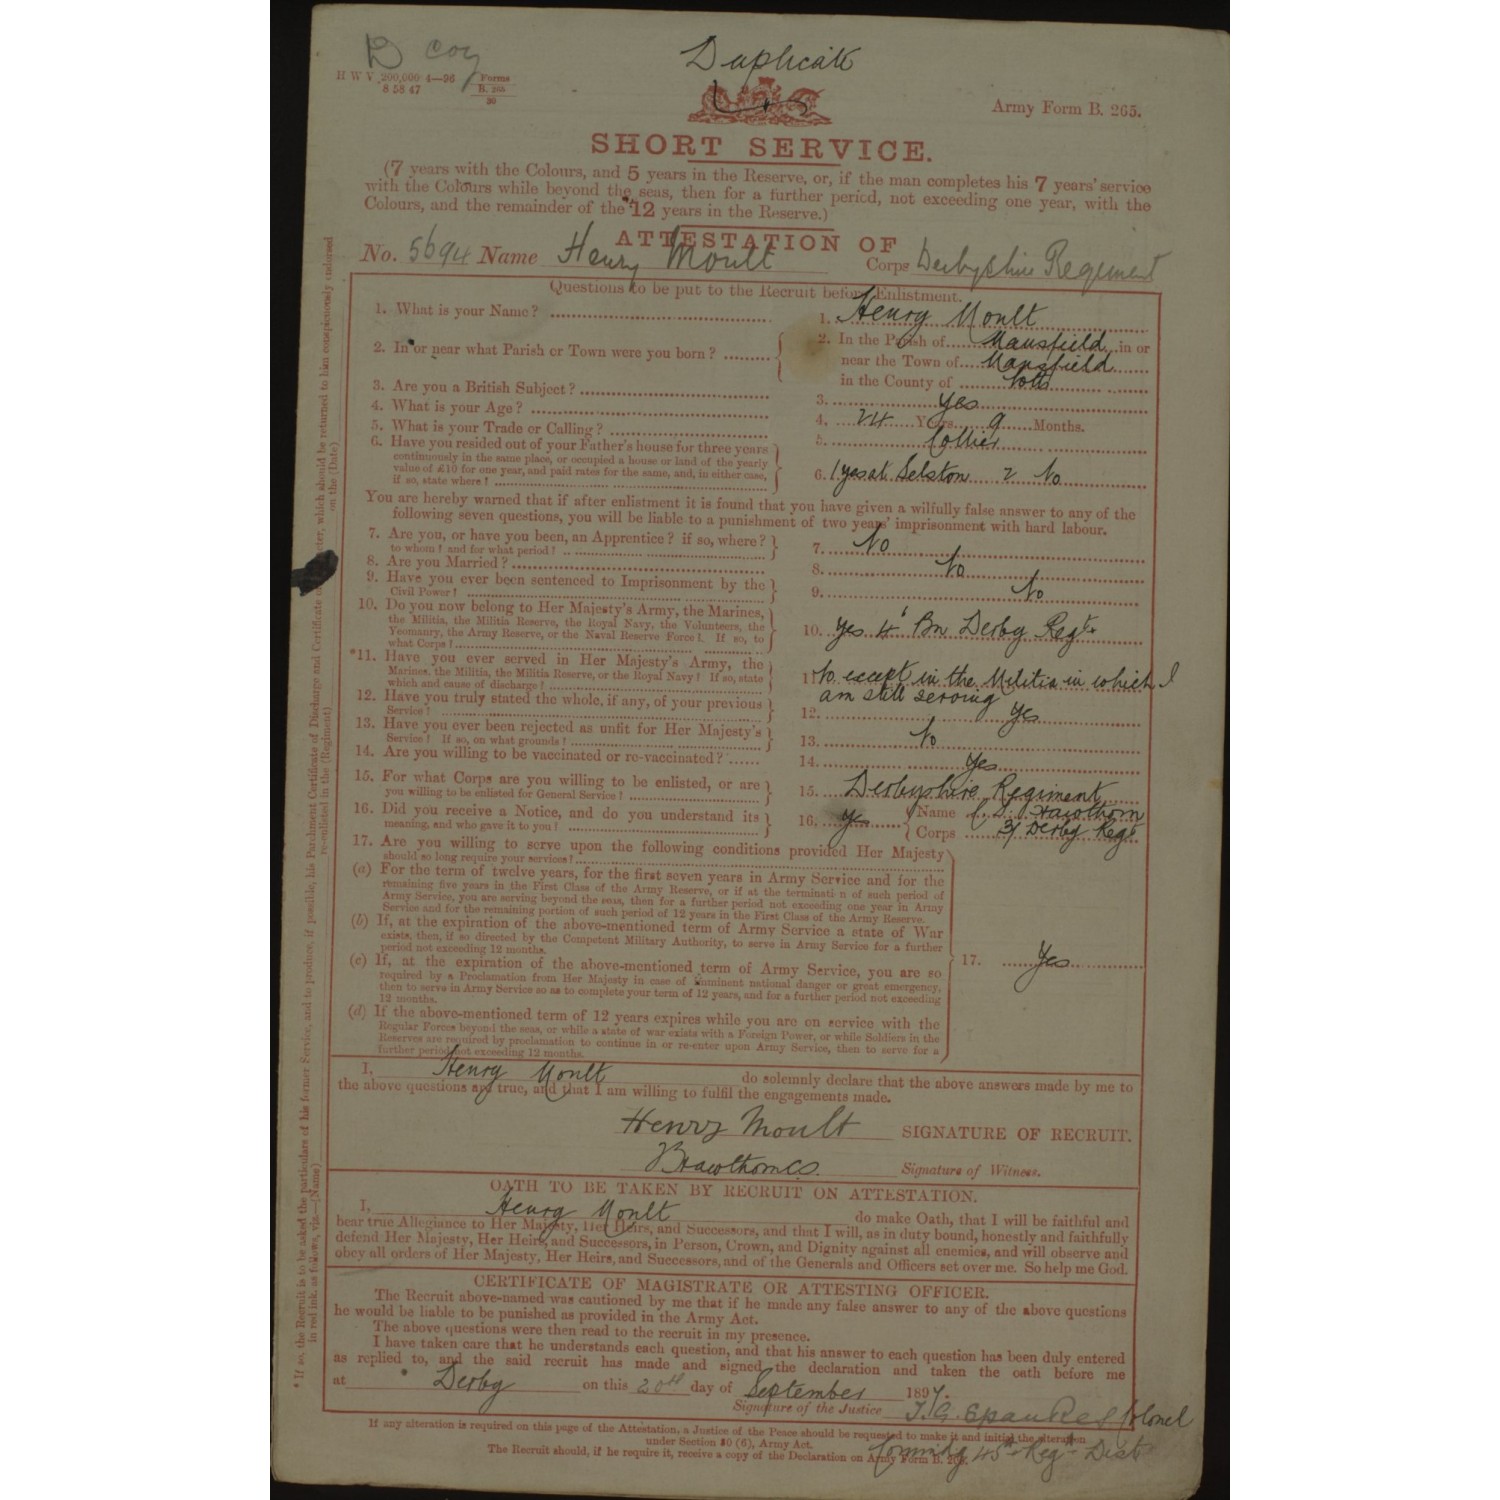 B Coy
Duplicate
H W V 200,000 4—96 Forms
8 58 47 B. 265
30
Army Form B. 265.
SHORT SERVICE.
(7 years with the Colours, and 5 years in the Reserve, or, if the man completes his 7 years' service
with the Colours while beyond the seas, then for a further period, not exceeding one year, with the
Colours, and the remainder of the 12 years in the Reserve.)
ATTESTATION OF
No. 5694 Name Henry Moult Corps Derbyshire Regiment
Questions to be put to the Recruit before Enlistment.
1. What is your Name? 1. Henry Moult
2. In or near what Parish or Town were you born? 2. In the Parish of Mansfield in or
near the Town of Mansfield
in the County of Notts
3. Are you a British Subject? 3. Yes
4. What is your Age? 4. 24 Years 9 Months.
5. What is your Trade or Calling? 5. Collier
6. Have you resided out of your Father's house for three years
continuously in the same place, or occupied a house or land of the yearly
value of £10 for one year, and paid rates for the same, and, in either case,
if so, state where? 6. 1 yes at Selston 2 No
You are hereby warned that if after enlistment it is found that you have given a wilfully false answer to any of the
following seven questions, you will be liable to a punishment of two years' imprisonment with hard labour.
7. Are you, or have you been, an Apprentice? if so, where? 7. No
to whom? and for what period?
8. Are you Married? 8. No
9. Have you ever been sentenced to Imprisonment by the 9. No
Civil Power?
10. Do you now belong to Her Majesty's Army, the Marines,
the Militia, the Militia Reserve, the Royal Navy, the Volunteers, the
Yeomanry, the Army Reserve, or the Naval Reserve Force? If so, to
what Corps? 10. Yes 4' Bn Derby Regt.
*11. Have you ever served in Her Majesty's Army, the
Marines, the Militia, the Militia Reserve, or the Royal Navy? If so, state
which and cause of discharge? 11 No except in the Militia in which I
am still serving
12. Have you truly stated the whole, if any, of your previous
Service? 12. Yes
13. Have you ever been rejected as unfit for Her Majesty's
Service? If so, on what grounds? 13. No
14. Are you willing to be vaccinated or re-vaccinated? 14. Yes
15. For what Corps are you willing to be enlisted, or are
you willing to be enlisted for General Service? 15. Derbyshire Regiment
16. Did you receive a Notice, and do you understand its
meaning, and who gave it to you? 16. Yes Name Hawthorn
Corps 3/ Derby Regt
17. Are you willing to serve upon the following conditions provided Her Majesty
should so long require your services?
(a) For the term of twelve years, for the first seven years in Army Service and for the
remaining five years in the First Class of the Army Reserve, or if at the terminati n of such period of
Army Service, you are serving beyond the seas, then for a further period not exceeding one year in Army
Service and for the remaining portion of such period of 12 years in the First Class of the Army Reserve.
(b) If, at the expiration of the above-mentioned term of Army Service a state of War
exists, then, if so directed by the Competent Military Authority, to serve in Army Service for a further
period not exceeding 12 months.
(c) If, at the expiration of the above-mentioned term of Army Service, you are so
required by a Proclamation from Her Majesty in case of imminent national danger or great emergency,
then to serve in Army Service so as to complete your term of 12 years, and for a further period not exceeding
12 months.
(d) If the above-mentioned term of 12 years expires while you are on service with the
Regular Forces beyond the seas, or while a state of war exists with a Foreign Power, or while Soldiers in the
Reserves are required by proclamation to continue in or re-enter upon Army Service, then to serve for a
further period not exceeding 12 months.
17. Yes
I, Henry Moult do solemnly declare that the above answers made by me to
the above questions are true, and that I am willing to fulfil the engagements made.
Henry Moult SIGNATURE OF RECRUIT.
Signature of Witness.
OATH TO BE TAKEN BY RECRUIT ON ATTESTATION.
I, Henry Moult do make Oath, that I will be faithful and
bear true Allegiance to Her Majesty, Her Heirs, and Successors, and that I will, as in duty bound, honestly and faithfully
defend Her Majesty, Her Heirs, and Successors, in Person, Crown, and Dignity against all enemies, and will observe and
obey all orders of Her Majesty, Her Heirs, and Successors, and of the Generals and Officers set over me. So help me God.
CERTIFICATE OF MAGISTRATE OR ATTESTING OFFICER.
The Recruit above-named was cautioned by me that if he made any false answer to any of the above questions
he would be liable to be punished as provided in the Army Act.
The above questions were then read to the recruit in my presence.
I have taken care that he understands each question, and that his answer to each question has been duly entered
as replied to, and the said recruit has made and signed the declaration and taken the oath before me
at Derby on this 20th day of September 1897.
Signature of the Justice Colonel
Commdg 45th Regt Dist
If any alteration is required on this page of the Attestation, a Justice of the Peace should be requested to make it and initial the alteration
under Section 80 (6), Army Act.
The Recruit should, if he require it, receive a copy of the Declaration on Army Form B.
* If so, the Recruit is to be asked the particulars of his former Service, and to produce, if possible, his Parchment Certificate of Discharge and Certificate of which should be returned to him conspicuously endorsed
in red ink, as follows, viz.—(Name) re-enlisted in the (Regiment) on the (Date)